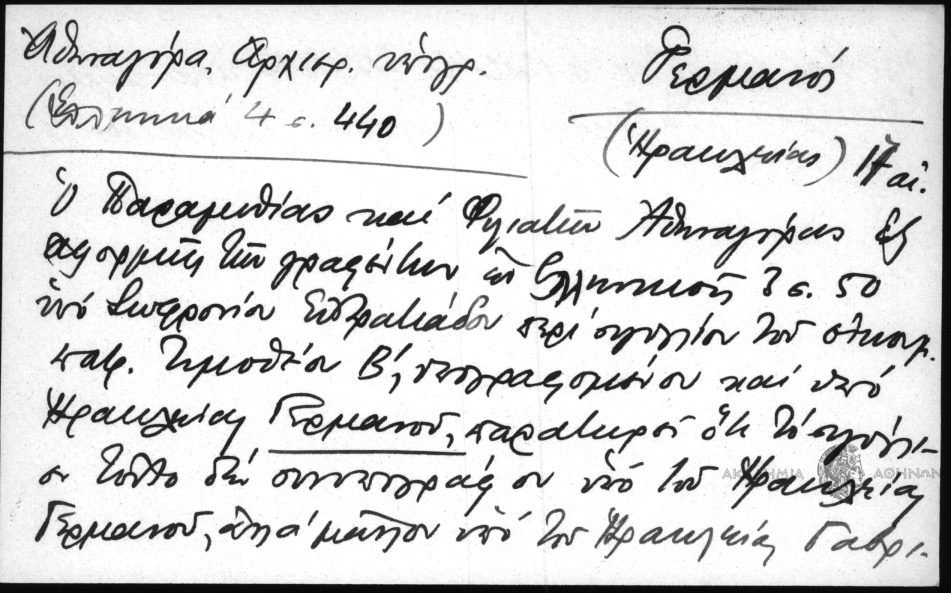 Ἀθηναγόρα, Ἀρχιερ. ὑπογρ.
(Ἑλληνικά 4 σ. 440)
Γερμανός
(Ἡρακλείας) 17 αἰ.
Ὁ Παραμυθίας καί Φιλιατῶν Ἀθηναγόρας ἐξ
ἀφορμῆς τῶν γραφέντων ἐν Ἑλληνικοῖς 3 σ. 50
ὑπό Σωφρονίου Εὐστρατιάδου περί σιγιλλίου τοῦ οἰκουμ.
πατρ. Τιμοθέου Β΄, ὑπογραφομένου καί ὑπό
Ἡρακλείας Γερμανοῦ, παρατηρεῖ ὅτι τό σιγίλλι-
ον τοῦτο δέν συνυπεγράφη ὑπό τοῦ Ἡρακλείας
Γερμανοῦ, ἀλλά μᾶλλον ὑπό τοῦ Ἡρακλείας Γαβρι-
ΑΚΑΔΗΜΙΑ ΑΘΗΝΩΝ